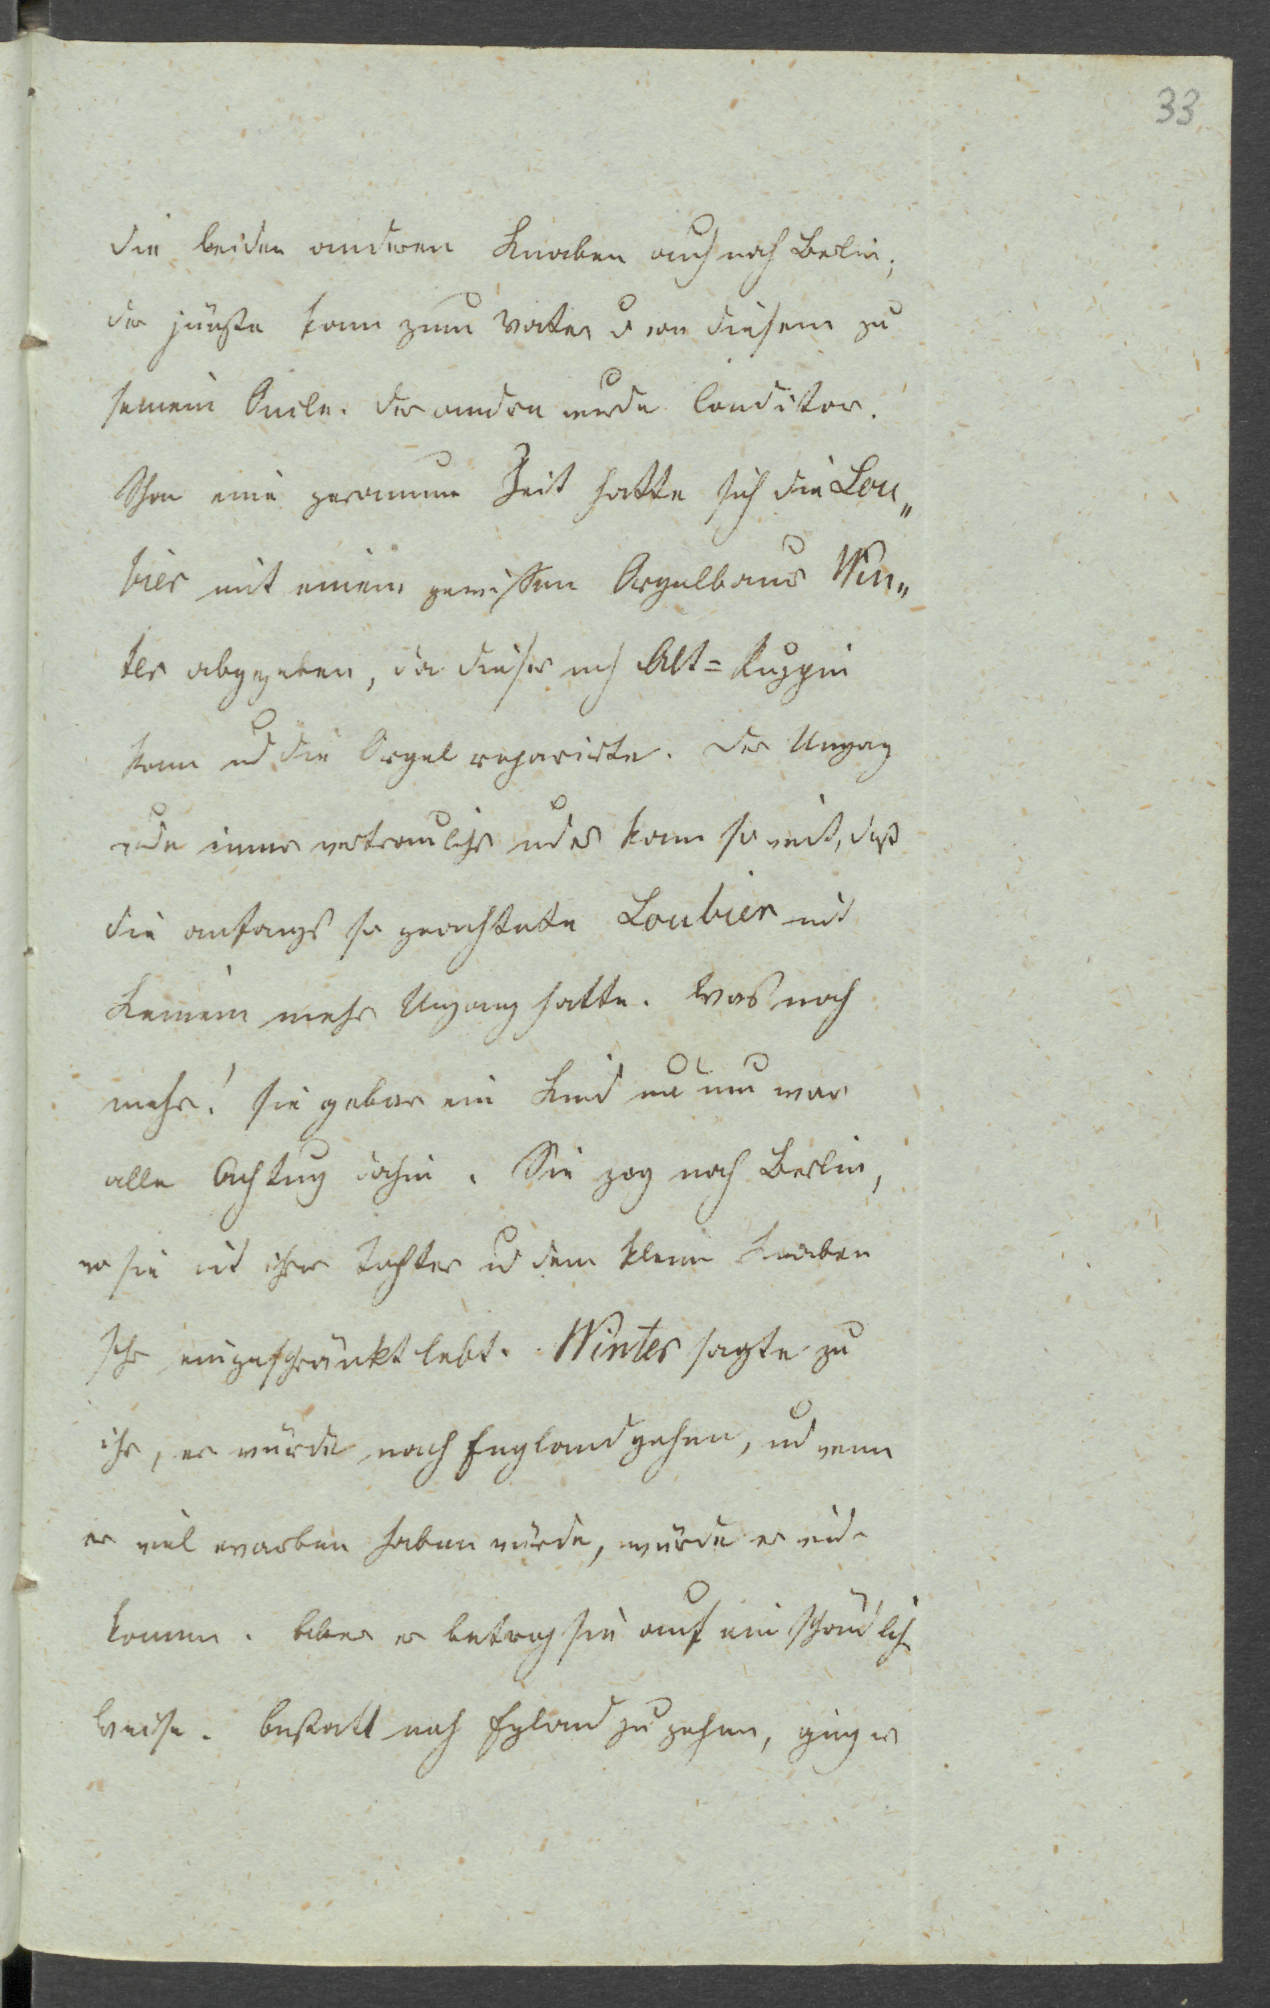 33
die beiden anderen Knaben auch nach Berlin;
der jüngste kam zum Vater u von diesem zu
seinem Onile. Der andre wurde Conditor.
Schon eine geraume Zeit hatte sich die Lou„
bier mit einem gewissen Orgelbauer Win„
ter abgegeben, da dieser nach Alt=Ruppin
kam und die Orgel reparirte. Der Umgang
wurde immer vertraulicher und es kam so weit, daß
die anfangs so geachtete Loubier mit
Keinem mehr Umgang hatte. Was noch
mehr! sie gebar ein Kind und nun war
alle Achtung dahin. Sie zog nach Berlin,
wo sie mit ihrer Tochter und dem kleinen Knaben
sehr eingeschränkt lebt. Winter sagte zu
ihr, er würde nach England gehen, und wenn
er viel erworben haben würde, würde er wieder
kommen. Aber er betrog sie auf eine schändliche
Weise. Anstatt nach England zu gehen, ging er